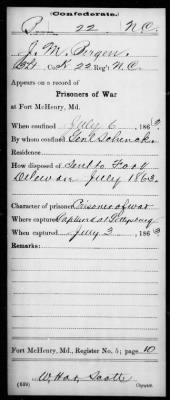 Confederate.
22 N.C.
J. M. Bryen
Co. K 22 Reg't N.C.
Appears on a record of
Prisoners of War
at Fort McHenry, Md.
When confined July 6, 1863.
By whom confined Genl Schenck
Residence
How disposed of Sent to Fort
Delaware July 1863.
Character of prisoner Prisoner of war
Where captured Captured at Gettysburg
When captured July 3, 1863
Remarks:
Fort McHenry, Md., Register No. 5; page 10
W. Hor. Soott
(639) Copyist.